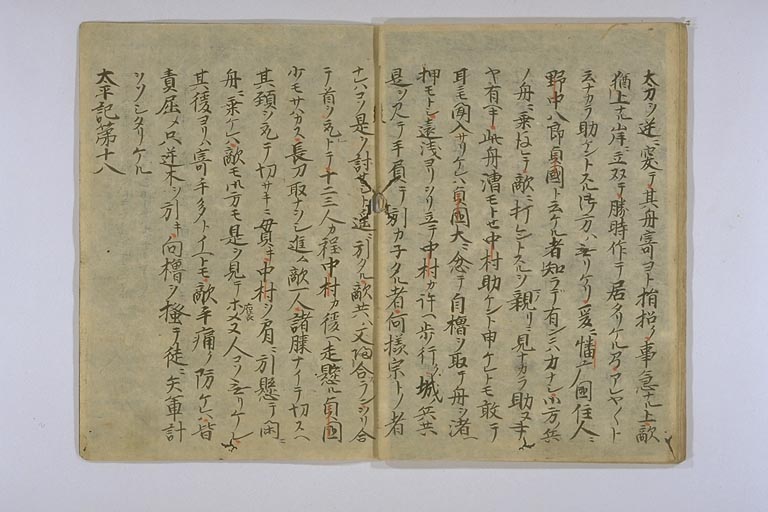 太刀ヲ逆ニ変テ其舟寄ヨト招招ク事急ナル上敵
猶上ナル岸ニ立双テ勝時作テ居タリケレハアレヤ〳〵ト
云ナカラ助ケントスル御方ハ無リケリ爰ニ播广國住人ニ
野中八郎貞國ト云ケル者知ラデ有ンハ力ナシ御方兵
ノ舟ニ乗ヲクレテ敵ニ打レントスルヲ親リニ見ナカラ助ヌ事ハ
ヤ有ヘキ此舟漕モトセ中村助ケント申ケレトモ敢テ
耳モ聞入サリケレハ貞國大ニ忿テ自櫓ヲ取テ舟ヲ渚ヘ
押モトシ遠浅ヨリヲリ立テ中村カ許ヘ歩行ク城兵共
是ヲ見テ手負テ引カ子タル者何様宗トノ者
ナハコソ是ヲ討セント遥ニ引タル敵共ハ合ラヲリ合
テ首ヲ取トテ十二三人カ程中村カ後ヘ走懸ル貞國
少モサハカス長刀取ナヲシ進ム敵一人諸膝ナイテ切スヘ
其頚ヲ取テ切サキニ貫キ中村ヲ肩ニ引懸テ閑ニ
舟ニ乗ケレハ敵モ御方モ是ヲ見テホメヌ人コソ無リケレ
其後ヨリハ寄手多トイヘトモ敵手痛ク防ケレハ皆
責屈メ只逆木ヲ引キ向櫓ヲ掻テ徒ニ矢軍計
ヲソシタリケル
太平記第十八